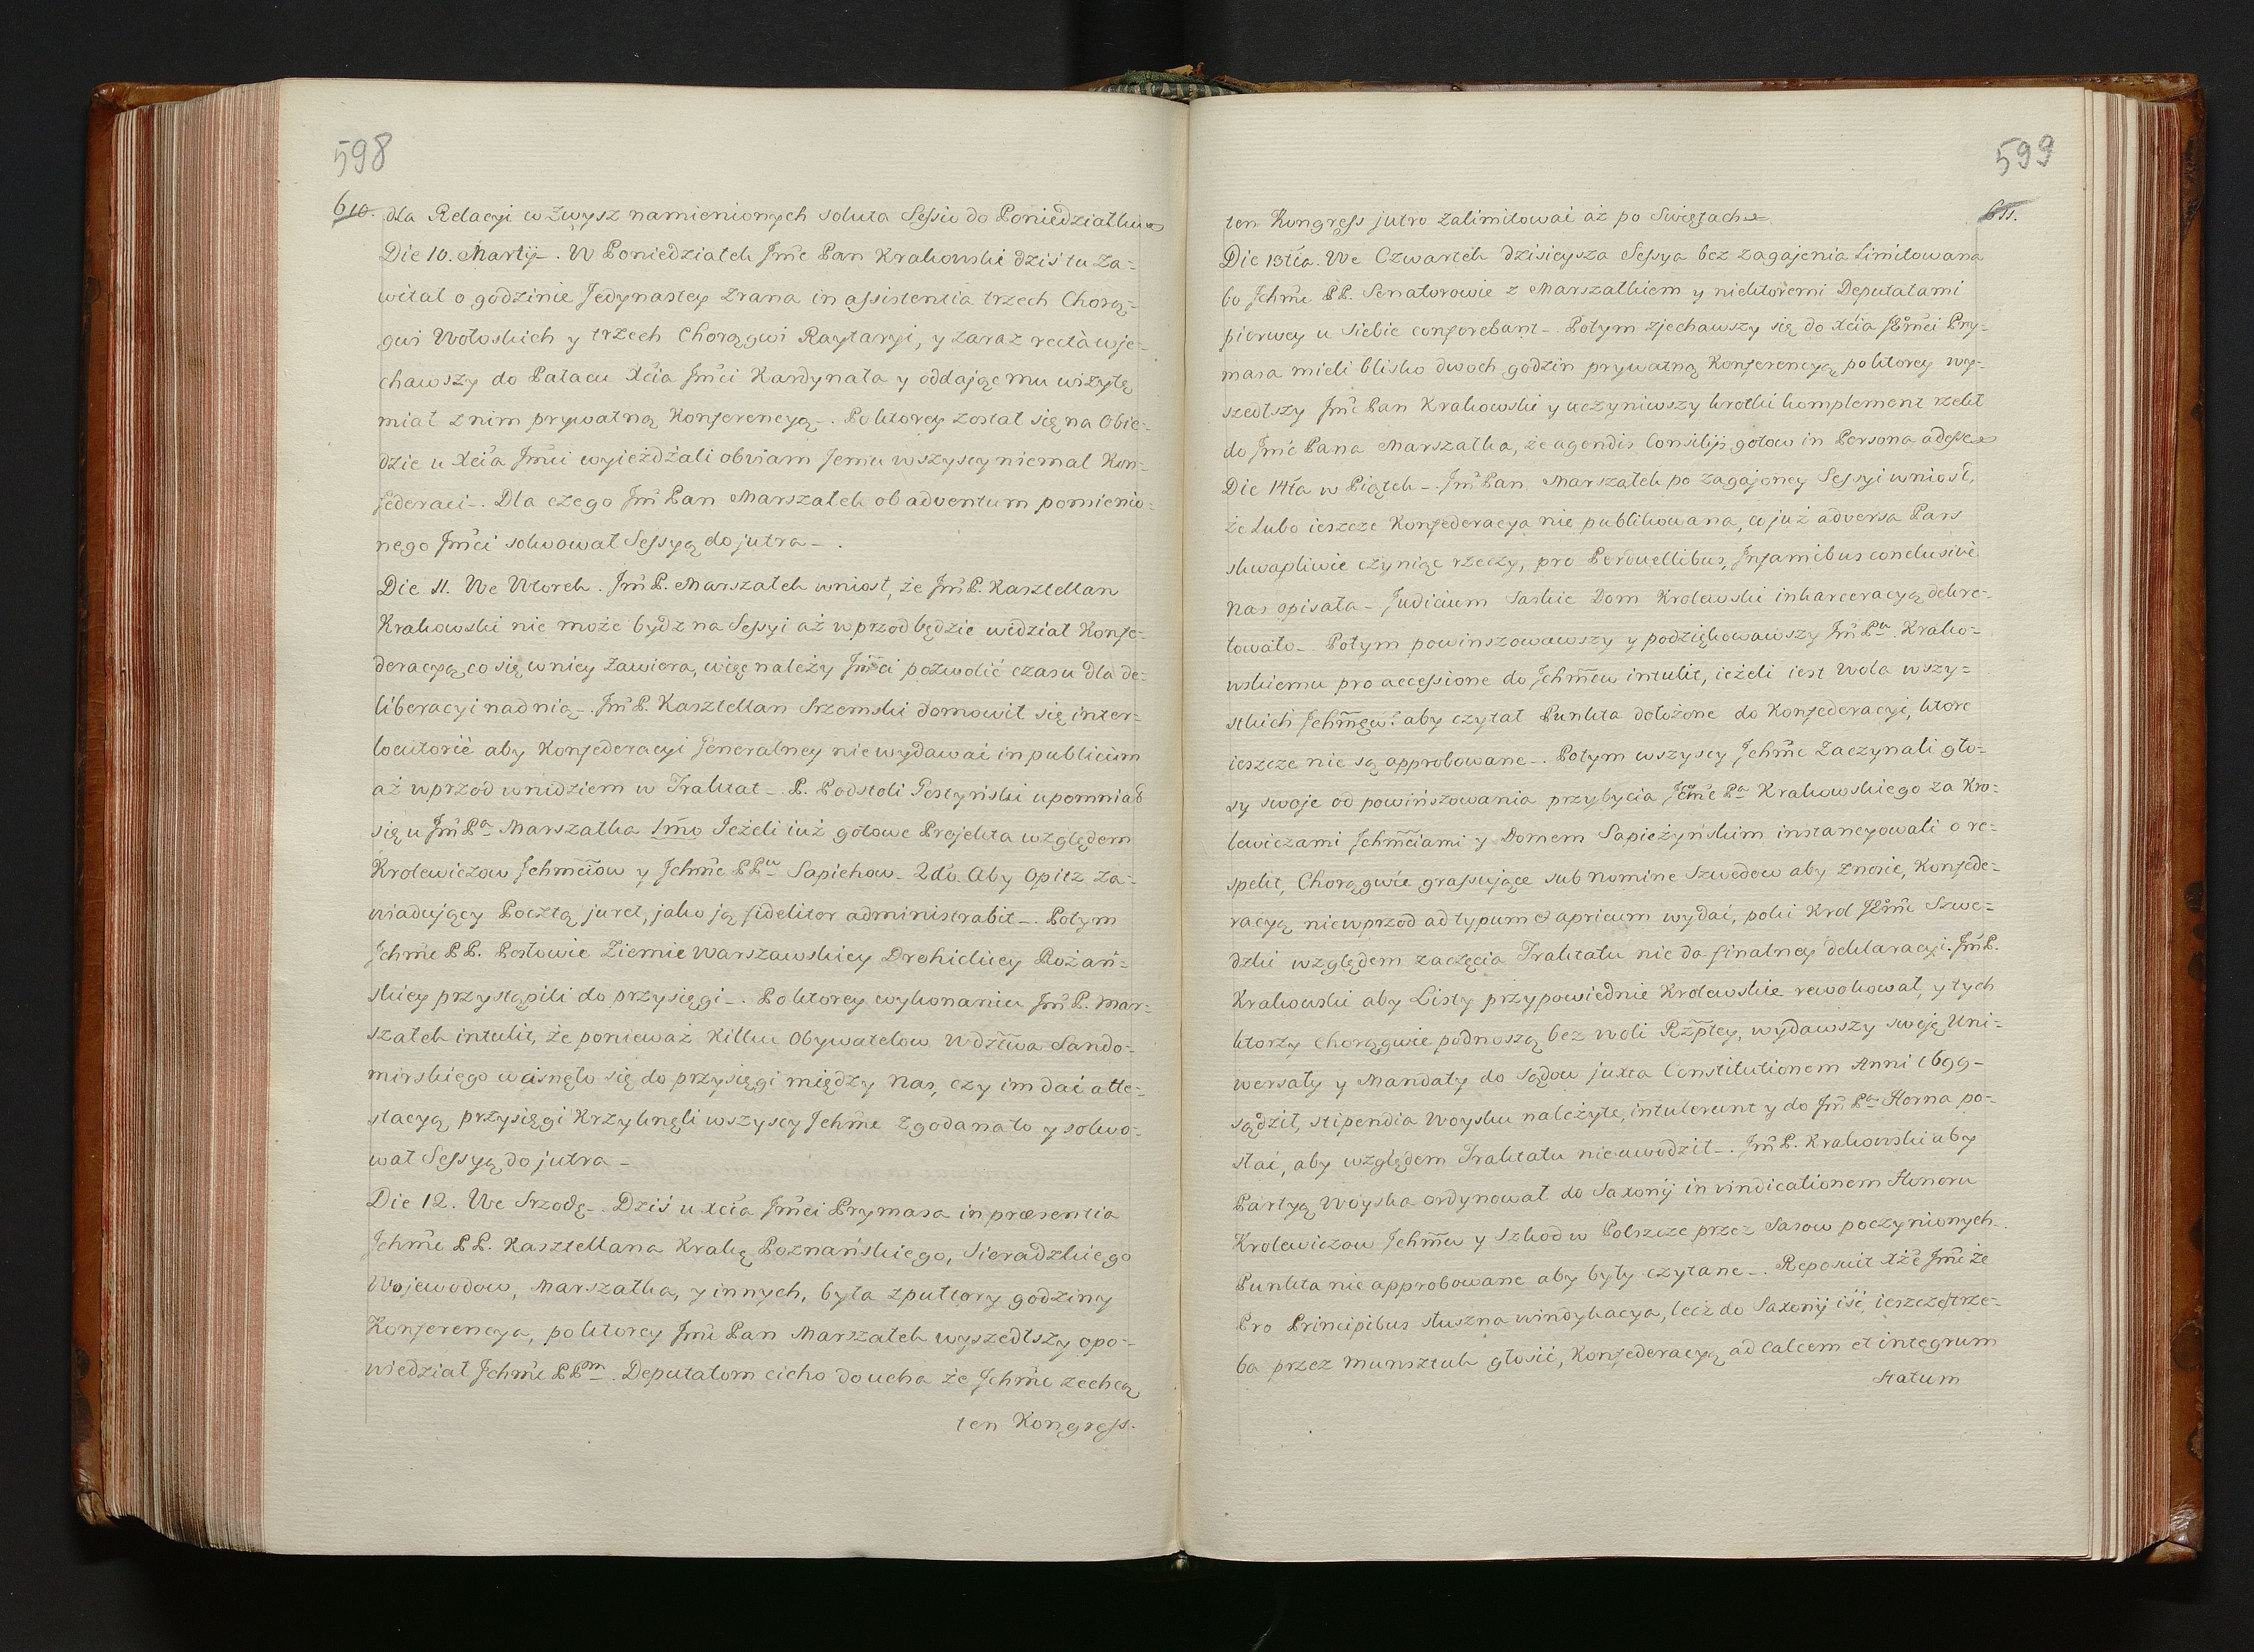 598
610. dla Relacyi w zwysz namienionych soluta Sessio do Poniedziałku
Die 10. Martij. W Poniedziałek Jmć Pan Krakowski dziś tu za-
witał o godzinie Jedynastey zrana in assistentia trzech Chorą-
gwi Wołoskich y trzech Chorągwi Raytaryi, y zaraz recta wje-
chawszy do Pałacu Xcia Jmći Kardynała y oddając mu wizytę
miał z nim prywatną Konferencyą. Po ktorey został się na Obie-
dzie u Xcia Jmći wyieżdżali obviam Jemu wszyscy niemal Kon-
federaci. Dla czego Jmć Pan Marszałek ob adventum pomienio-
nego Jmći solwował Sessyą do jutra.
Die 11. We Wtorek. Jmć P. Marszałek wniosł, że Jmć P. Kasztellan
Krakowski nie może bydz na Sessyi aż wprzod będzie widział Konfe-
deracyą, co się w niey zawiera, więc należy Jmści pozwolić czasu dla de-
liberacyi nad nią. Jmć P. Kasztellan Srzemski domowił się inter-
locutorie aby Konfederacyi Jeneralney nie wydawać in publicum
aż wprzod wnidziem w Traktat. P. Podstoli Gostyński upomniał
się u Jmć Pa Marszałka 1mo Jeżeli iuż gotowe Projekta względem
Krolewiczow Jchmćiow y Jchmć PPw Sapiehow. 2do. Aby Opitz za-
wiadujący Pocztą juret, jako ją fidelitor administrabit. Potym
Jchmć PP. Posłowie Ziemie Warszawskiey Drohickiey Rożań-
skiey przystąpili do przysięgi. Po ktorey wykonaniu Jmć P. Mar-
szałek intulit, że ponieważ Kilku Obywatelow Wdztwa Sando-
mirskiego wcisnęło się do przysięgi między nas, czy im dać atte-
stacyą przysięgi Krzyknęli wszyscy Jchmć zgoda na to y solwo-
wał Sessyą do jutra
Die 12. We Srzodę. Dziś u Xcia Jmći Prymasa in præsentia
Jchmć PP. Kasztellana Krakę Poznańskiego, Sieradzkiego
Wojewodow, Marszałka, y innych, była z pułtory godziny
Konferencya, po ktorey Jmć Pan Marszałek wyszedłszy opo-
wiedział Jchmć PPm. Deputatom cicho do ucha że Jchmć zechcą
ten Kongress.
599
611.
ten Kongress jutro zalimitować aż po Swiętach
Die 13tia. We Czwartek dzisieysza Sessya bez zagajenia limitowana
bo Jchmć PP. Senatorowie z Marszałkiem y niektoremi Deputatami
pierwey u siebie conferebant. Potym zjechawszy się do Xcia JEmći Pry-
masa mieli blisko dwoch godzin prywatną Konferencyą, po ktorey wy-
szedłszy Jmć Pan Krakowski y uczyniwszy krotki komplement rzekł
do Jmć Pana Marszałka, że agendis Consilijs gotow in Persona adesse
Die 14ta w Piątek. Jmć Pan Marszałek po zagajoney Sessyi wniosł,
że lubo ieszcze Konfederacya nie publikowana, co już adversa Pars
skwapliwie czyniąc rzeczy, pro Perduellibus, Infamibus conclusive
nas opisała. Judicium Saskie Dom Krolewski inkarceracyą dekre-
towało. Potym powinszowawszy y podziękowawszy Jmć Pu Krako-
wskiemu pro accessione do Jchmćw intulit, ieżeli iest wola wszy-
stkich Jchmćw? aby czytał Punkta dołożone do Konfederacyi, ktore
ieszcze nie są approbowane. Potym wszyscy Jchmć zaczynali gło-
sy swoje od powinszowania przybycia Jmć Pa Krakowskiego za Kro-
lewiczami Jchmćiami y Domem Sapieżyńskim instancyowali o re-
spekt, Chorągwie grassujące sub nomine Szwedow aby znosić, Konfede-
racyą niewprzod ad typum et apricum wydać, poki Krol JEmć Szwe-
dzki względem zaczęcia Traktatu nie da finalney deklaracyi. Jmć P.
Krakowski aby Listy przypowiednie Krolewskie rewokował, y tych
ktorzy Chorągwie podnoszą bez woli Rzptey, wydawszy swoję Uni-
wersały y Mandaty do Sądow juxta Constitutionem Anni 1699
sądził, stipendia Woysku należyte, intulerunt y do Jmć Pa Horna po-
słać, aby względem Traktatu nie uwodził. Jmć P. Krakowski aby
Partyą Woyska ordynował do Saxonij in vindicationem Honoru
Krolewiczow Jchmćw y szkod w Polszcze przez Sasow poczynionych.
Punkta nie approbowane aby były czytane. Reposuit Xże Jmć że
Pro Principibus słuszna windykacya, lecz do Saxonij iść, ieszcze trze-
ba przez munsztuk głosić, Konfederacyą ad calcem et integrum
statum